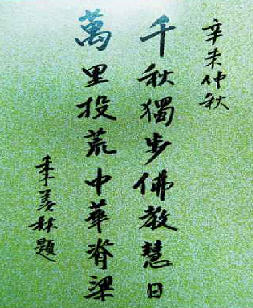 辛未仲秋
千秋獨步佛教慧日
萬里投荒中華脊梁
季羡林題